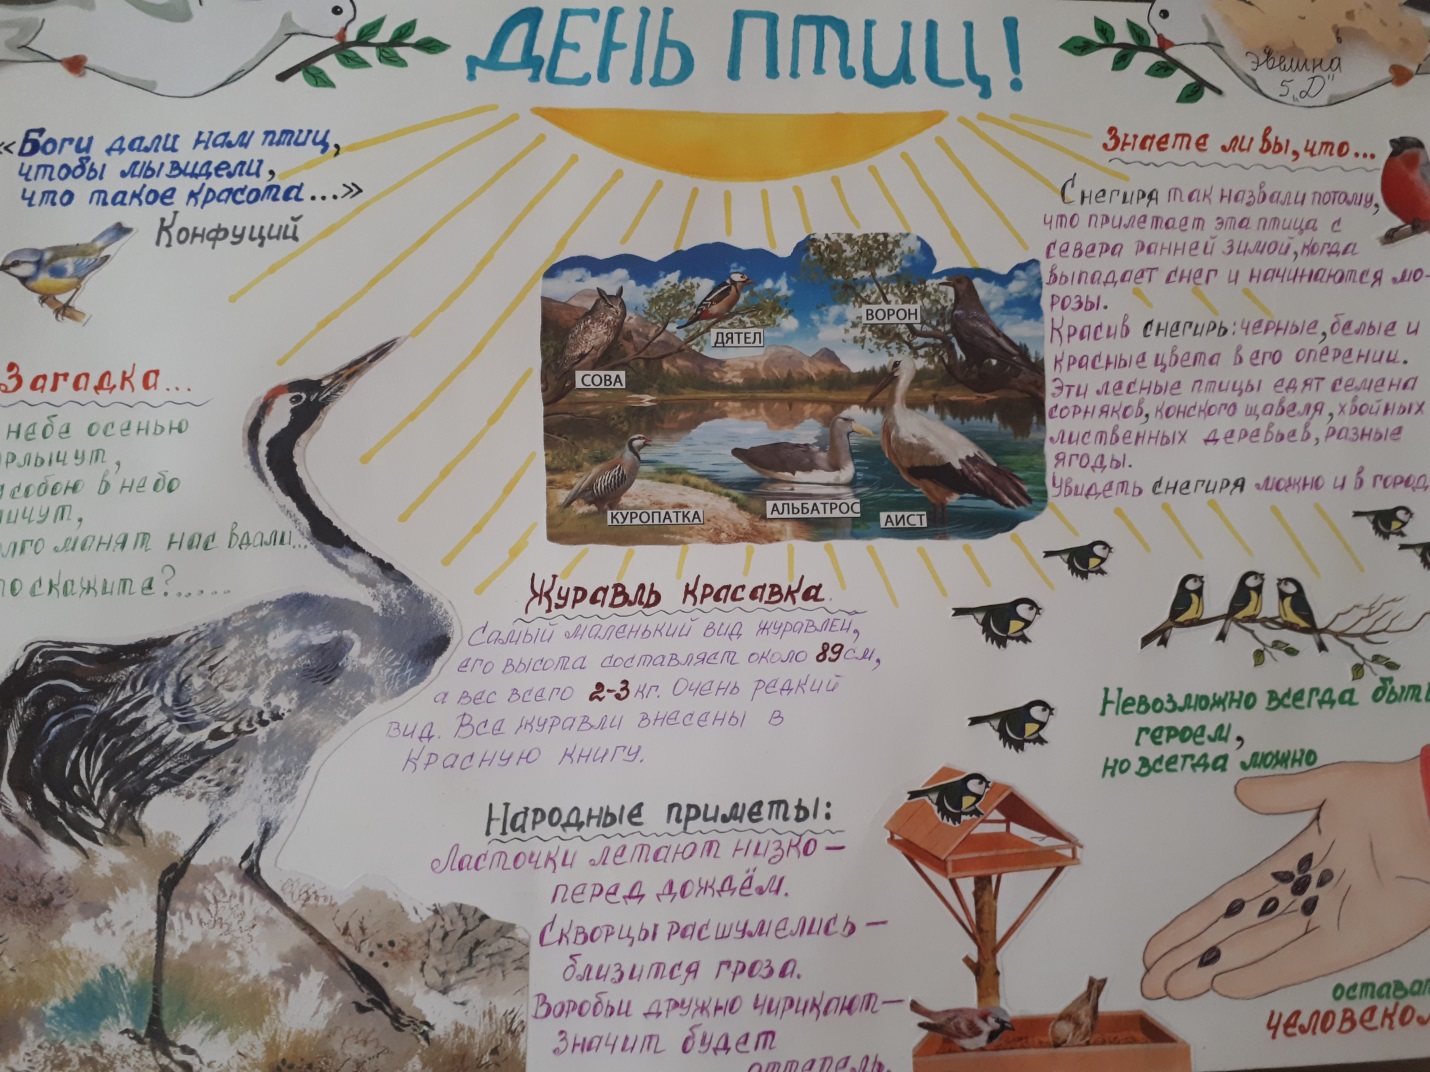 ДЕНЬ ПТИЦ!
Эвелина
5 „Д"
«Боги дали нам птиц,
чтобы мы видели,
что такое красота...»
Конфуций
Загадка...
небе осенью
собою в небо
манят нас вдали...
скажите?......
СОВА
ДЯТЕЛ
ВОРОН
КУРОПАТКА
АЛЬБАТРОС
АИСТ
Знаете ли вы, что...
Снегиря так назвали потому,
что прилетает эта птица с
севера ранней зимой, когда
выпадает снег и начинаются мо-
розы.
Красив снегирь: черные, белые и
красные цвета в его оперении.
Эти лесные птицы едят семена
сорняков, конского щавеля, хвойных
лиственных деревьев, разные
ягоды.
Увидеть снегиря можно и в город
Журавль красавка
Самый маленький вид журавлей,
его высота составляет около 89 см,
а вес всего 2-3 кг. Очень редкий
вид. Все журавли внесены в
Красную книгу.
Народные приметы:
Ласточки летают низко —
перед дождём.
Скворцы расшумелись —
близится гроза.
Воробьи дружно чирикают —
значит будет
оттепель.
Невозможно всегда быть
героем,
но всегда можно
остават
человеком